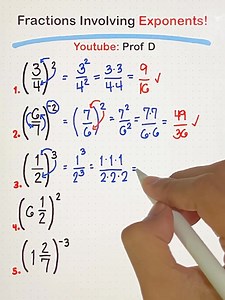 Fractions Involving Exponents!
Youtube: Prof D
1. (3/4)² = 3²/4² = 3·3/4·4 = 9/16 ✓
2. (6/7)⁻² = (7/6)² = 7²/6² = 7·7/6·6 = 49/36 ✓
3. (1/2)³ = 1³/2³ = 1·1·1/2·2·2 =
4. (6 1/2)²
5. (1 2/7)⁻³